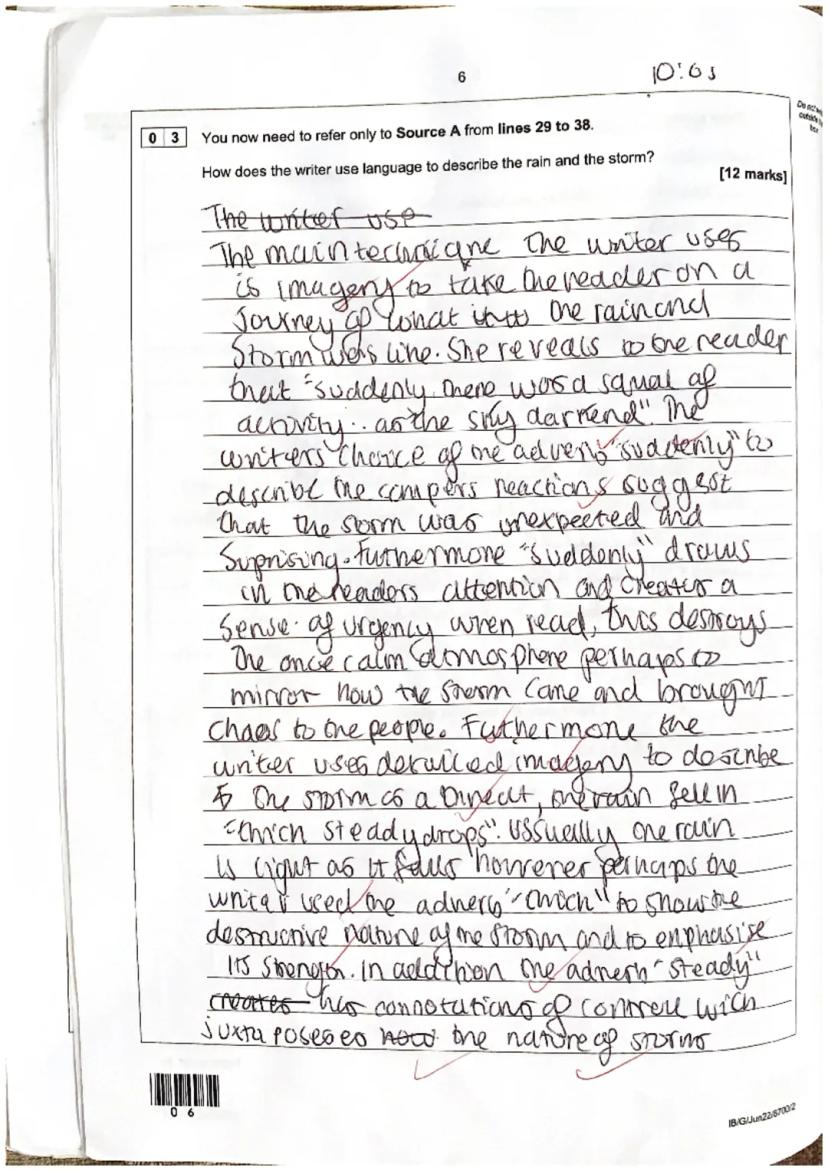 6
10:05
Do not write
outside the
box
0 3 You now need to refer only to Source A from lines 29 to 38.
How does the writer use language to describe the rain and the storm?
[12 marks]
The writer use
The main technique the writer uses
is imagery to take the reader on a
journey of what the rain and
storm was like. She reveals to the reader
that "suddenly there was a squal of
activity.. as the sky darkend". The
writers choice of the adverb "suddenly" to
describe the campers reactions suggest
that the storm was unexpected and
Suprising. Futhermore "suddenly" draws
in the readers attention and creates a
sense of urgency when read, this destroys
the once calm atmosphere perhaps to
mirror how the storm came and brought
chaos to the people. Futhermore the
writer uses detailed imagery to describe
the storm as a threat, the rain fell in
"thick steady drops". Ussually the rain
is light as it falls however perhaps the
writer used the adverb "thick" to show the
destructive nature of the storm and to enphasise
its strength. In addition the adverb "steady"
creates has connotations of controll wich
juxtaposeses how the nature of storms
0 6
IB/G/Jun22/8700/2